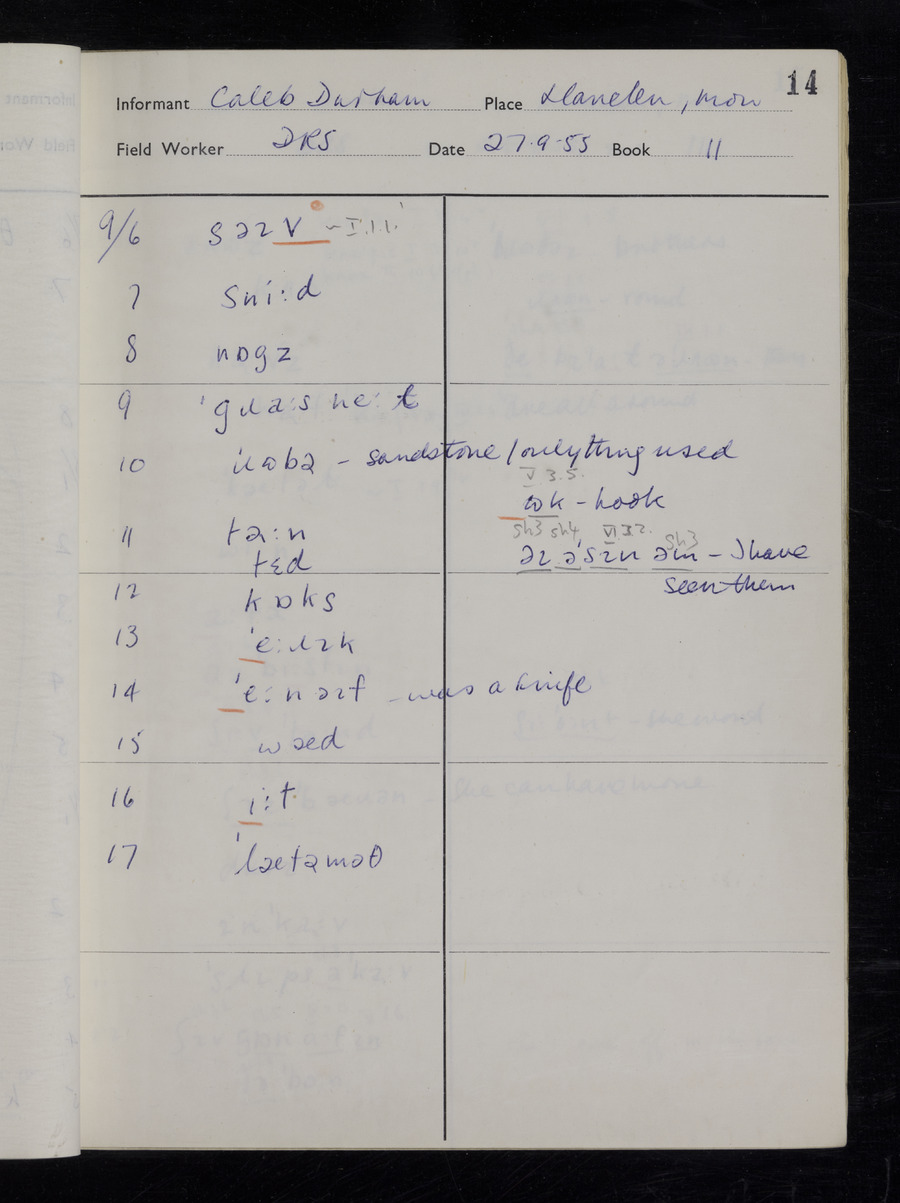 14
Informant Caleb Durham Place Llanelen, Mon
Field Worker DRS Date 27.9.55 Book II
9/6 səɪv ~I.1.1.
7 sni:d
8 nɒgz
9 ˈgɹa:sne:t
10 ɹʊbə - sandstone / only thing used
V.3.5.
ʊk - hook
11 tə:n
sh3 sh4 VI.3.2. sh3
əɪ əˈsɪn əm - I have
tɛd
seen them
12 kɒks
13 ˈe:ɹɪk
14 ˈe:nəɪf - was a knife
15 wəed
16 i:t
17 ˈlætəmaθ